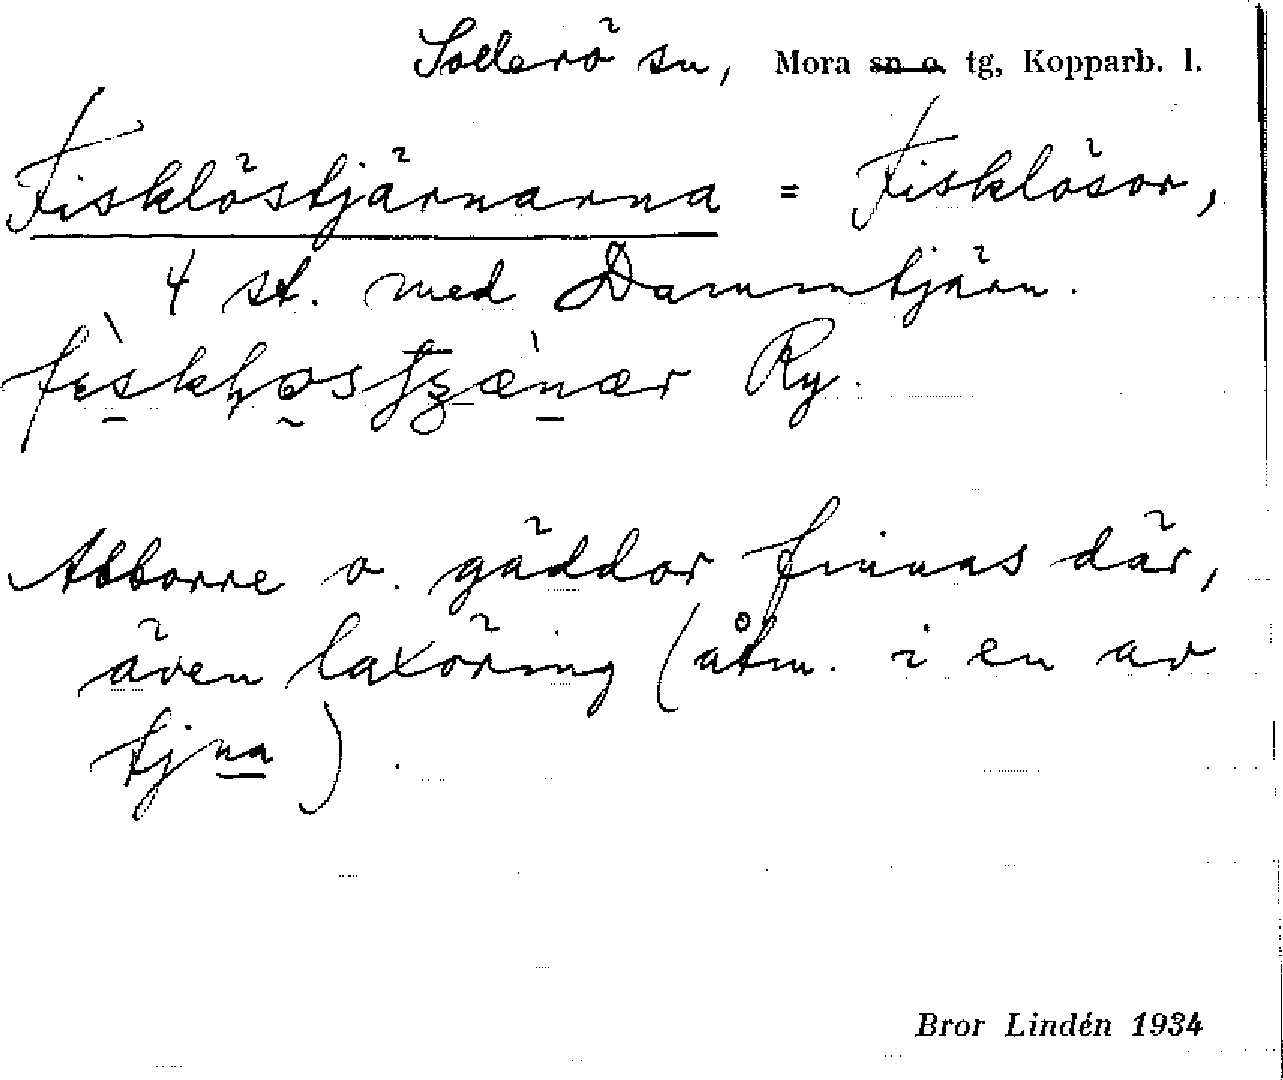 Sollerö sn, Mora sn o. tg, Kopparb. l.
Fisklöstjärnarna = Fisklösor,
4 st. med Dammtjärn.
Ry.
Abborre o. gäddor finnas där,
även laxöring (åtm. i en av
tjna).
Bror Lindén 1934